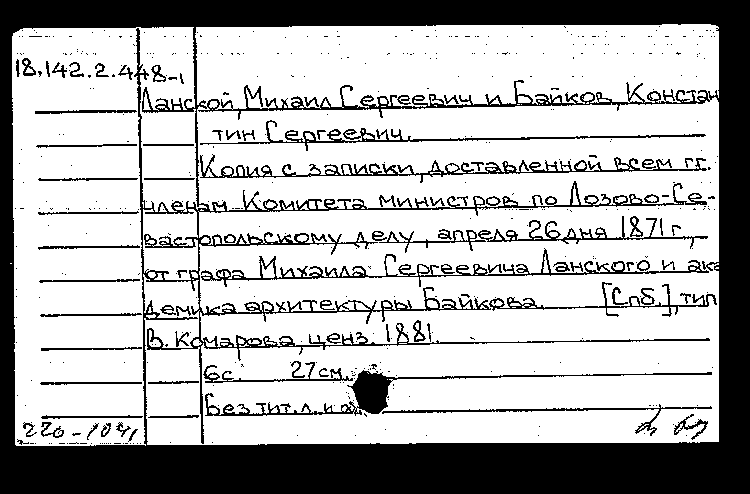 18.142.2.448-1
Ланской, Михаил Сергеевич и Байков, Констан
тин Сергеевич.
Копия с записки, доставленной всем г.г.
членам Комитета министров по Лозово-Се-
вастопольскому делу, апреля 26 дня 1871 г.,
от графа Михаила Сергеевича Ланского и ака
демика архитектуры Байкова. [Спб.], тип
В. Комарова, ценз. 1881.
6с. 27 см.
Без тит. л. и
220-1041